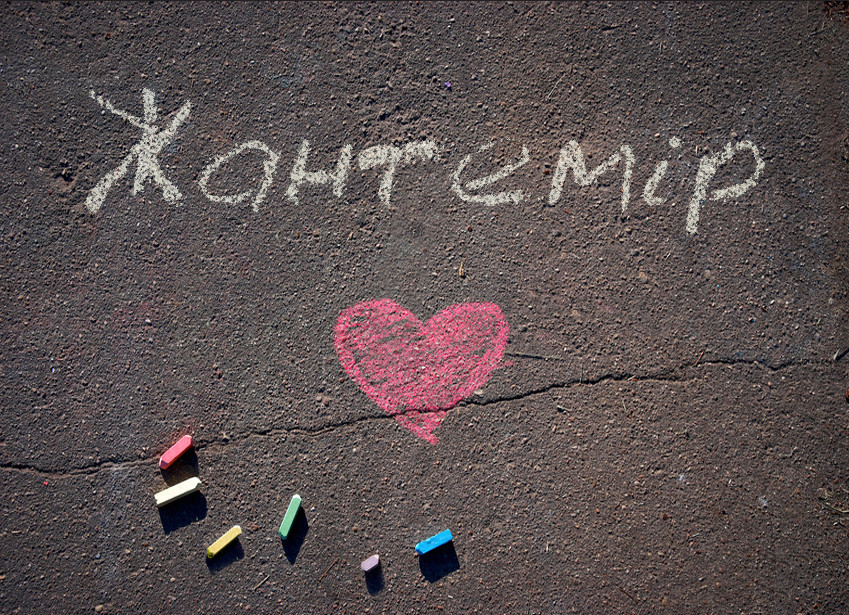 Жантемір